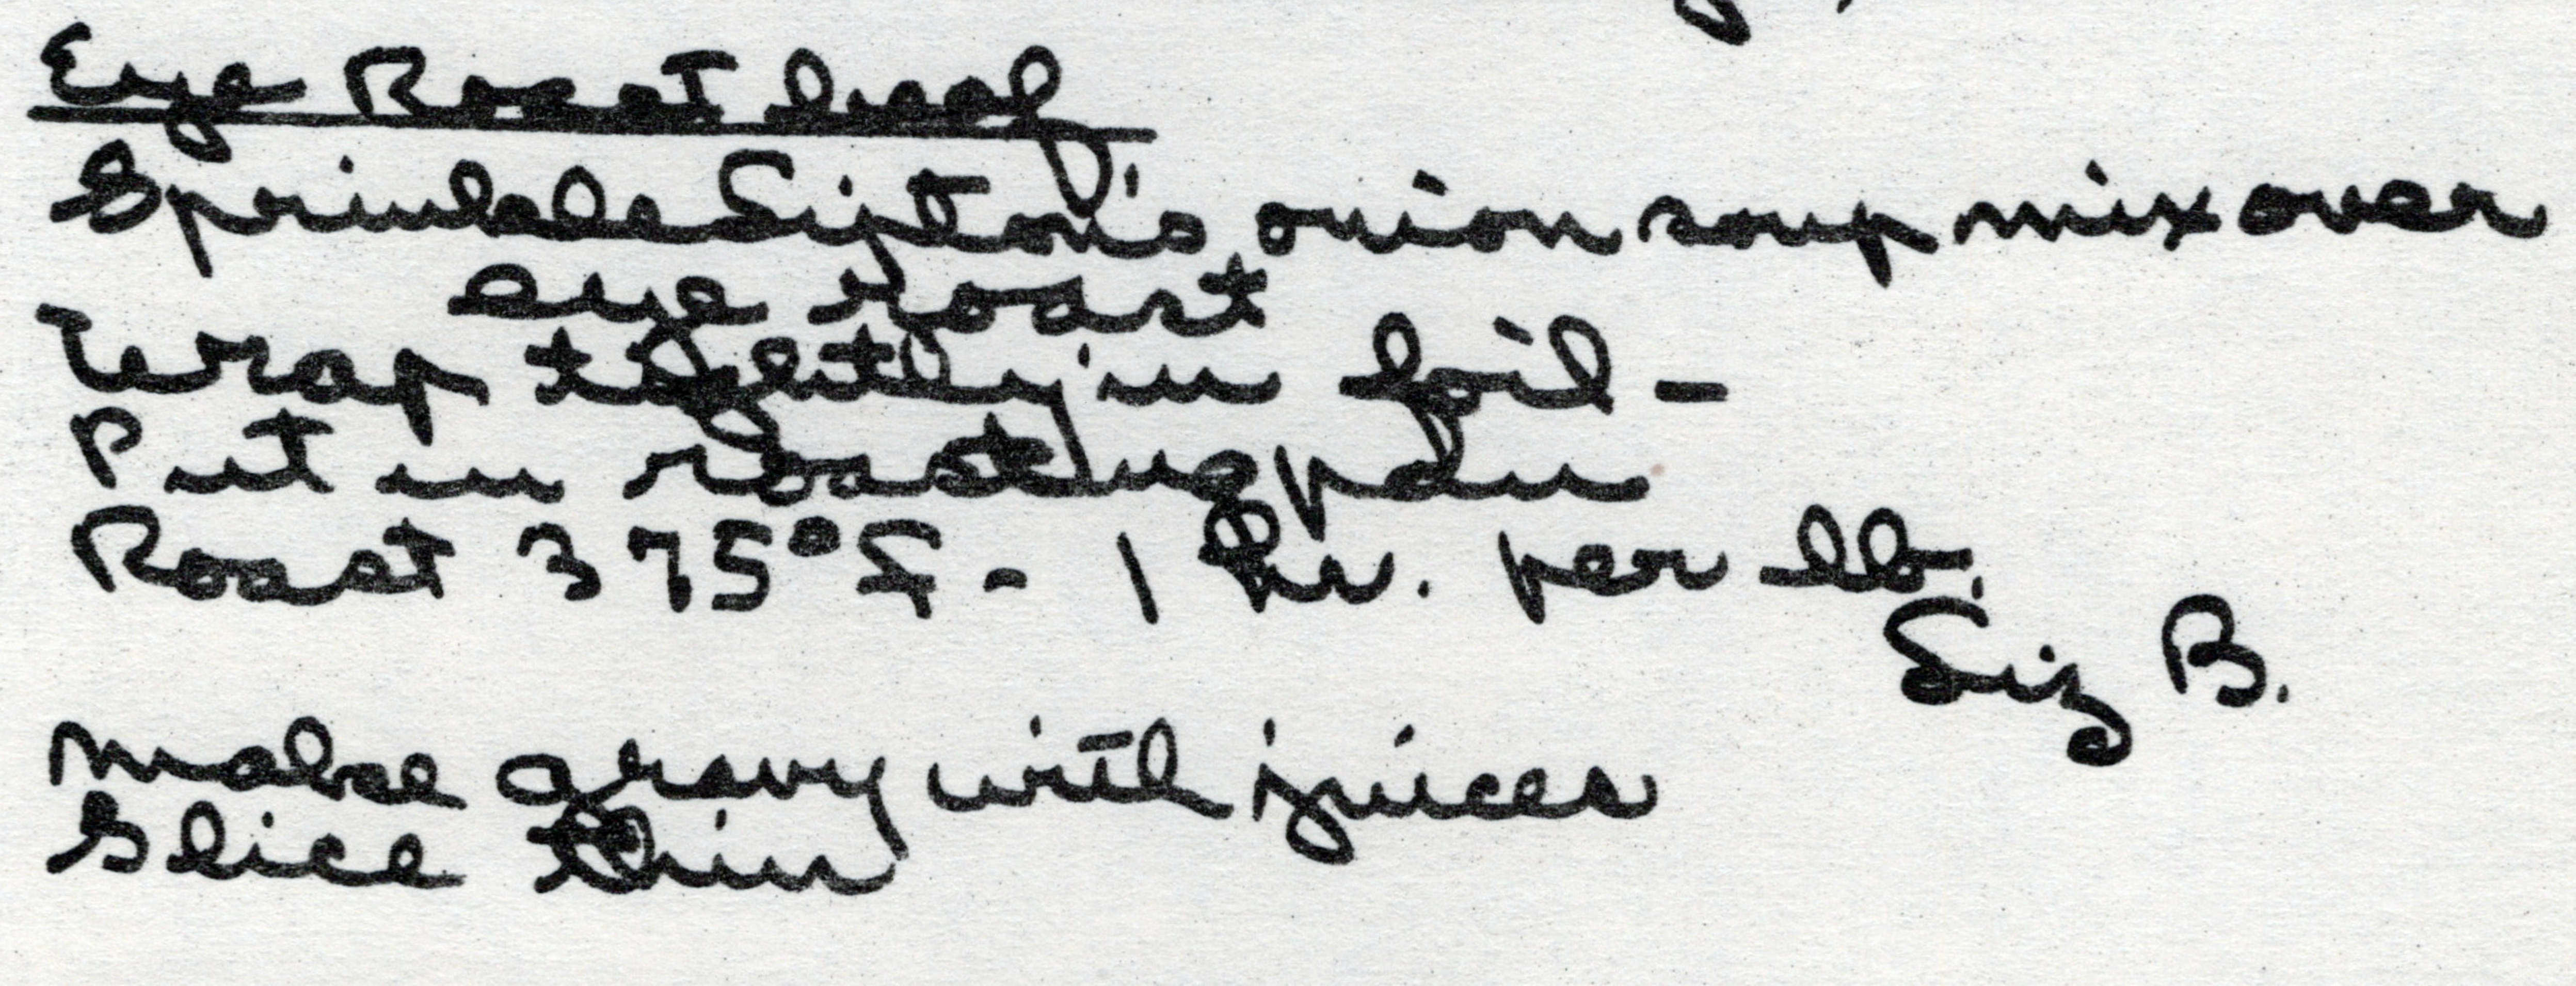 Eye Roast beef
Sprinkle Lipton's onion soup mix over
eye roast
Wrap tightly in foil -
Put in roasting pan
Roast 375°F - 1 hr. per lb.
Liz B.
Make gravy with juices
Slice thin